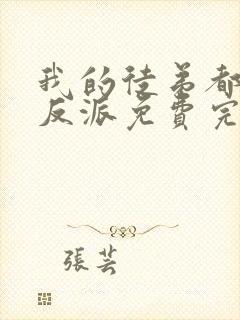 我的徒弟都
反派免費完
張芸